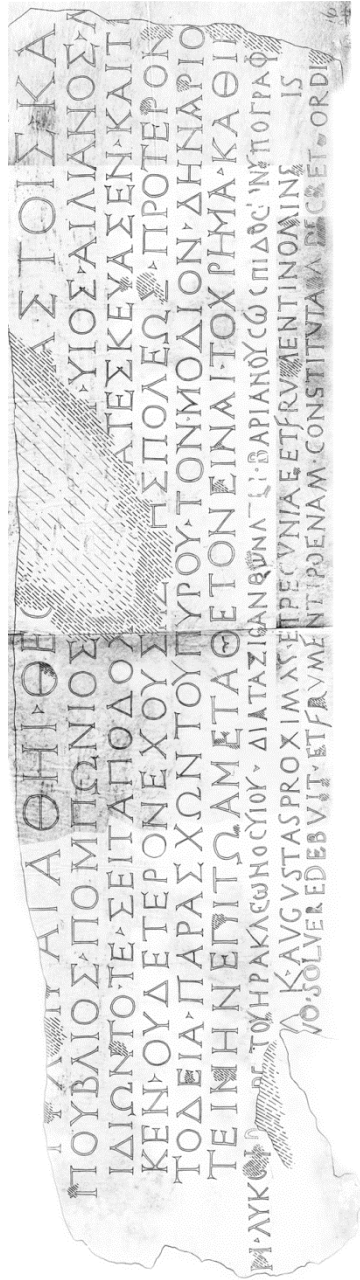 ΑΓΑΘΗΙ·ΘΕ ΑΣΤΟΙΣΚΑ
ΠΟΥΒΛΙΟΣ·ΠΟΜΠΩΝΙΟΣ ΥΙΟΣ·ΑΙΛΙΑΝΟΣ
ΙΔΙΩΝΤΟ·ΤΕ·ΣΕΙΤΑΠΟΔΟΧ ΑΤΕΣΚΕΥΑΣΕΝ·ΚΑΙΤ
ΚΕΝ·ΟΥΔΕΤΕΡΟΝΕΧΟΥΣ ΗΣΠΟΛΕΩΣ·ΠΡΟΤΕΡΟΝ
ΤΟΔΕΙΑ·ΠΑΡΑΣΧΩΝΤΟΥΠΥΡΟΥ·ΤΟΝ·ΜΟΔΙΟΝ·ΔΗΝΑΡΙΟ
ΤΕΙΝΗΝΕΠΙΤΩΑΜΕΤΑΘΕΤΟΝΕΙΝΑΙ·ΤΟΧΡΗΜΑ·ΚΑΘΗ
Μ·ΛΥΚΟ ΤΟΥΗΡΑΚΛΕΩΝΟCΥΙΟΥ·ΔΙΑΤΑΞΙC ΒΑΡΙΑΝΟΥ ΥΠΟΓΡΑΦ
K·AUGUSTASPROXIMAS·ETPECVNIAEETFRVMENTINOMINE IS
VO·SOLVEREDEBVIT·ETFRVMENTIPOENAM·CONSTITVTAM DECRET·ORDI